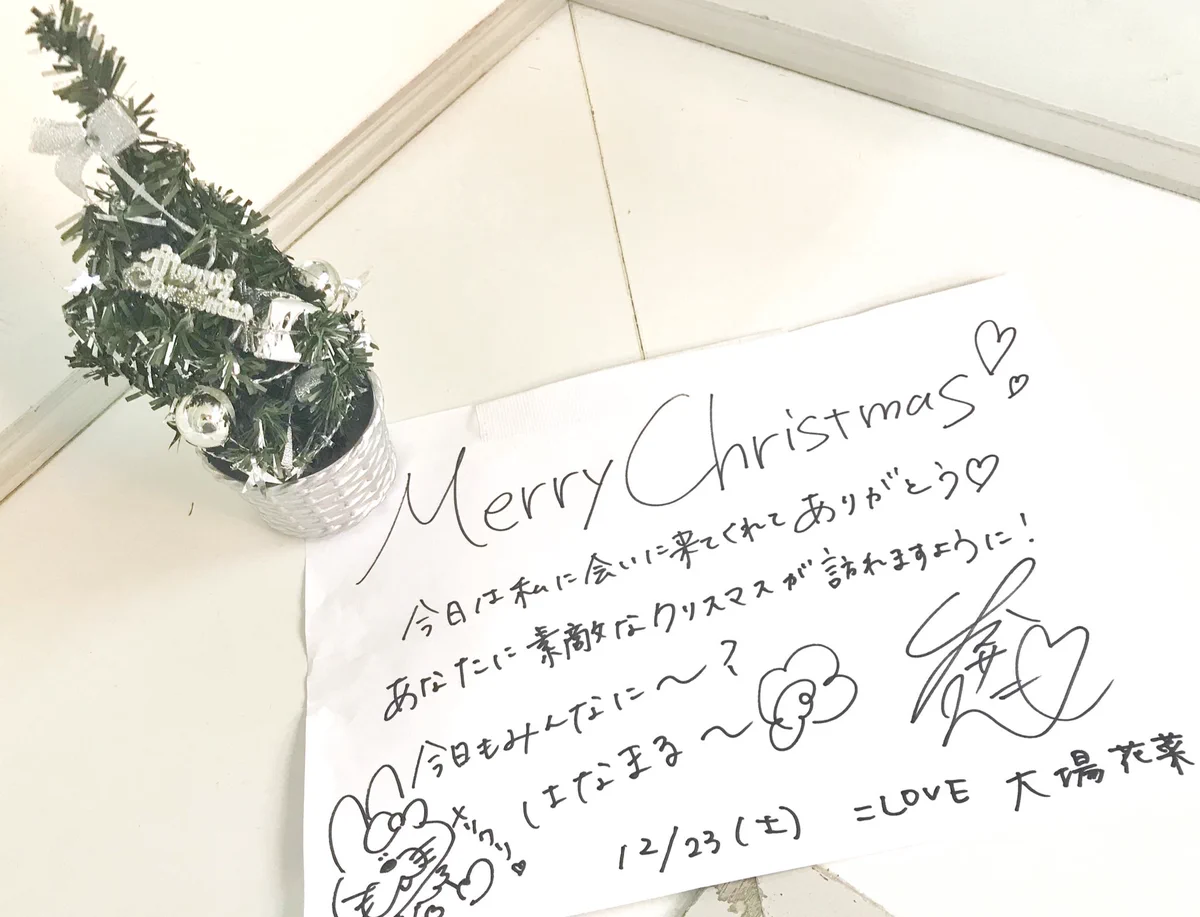 Merry Christmas
Merry Christmas
今日は私に会いに来てくれてありがとう
あなたに素敵なクリスマスが訪れますように!
今日もみんなに〜?
はなまる〜
メリクリ
12/23(土) =LOVE 大場花菜